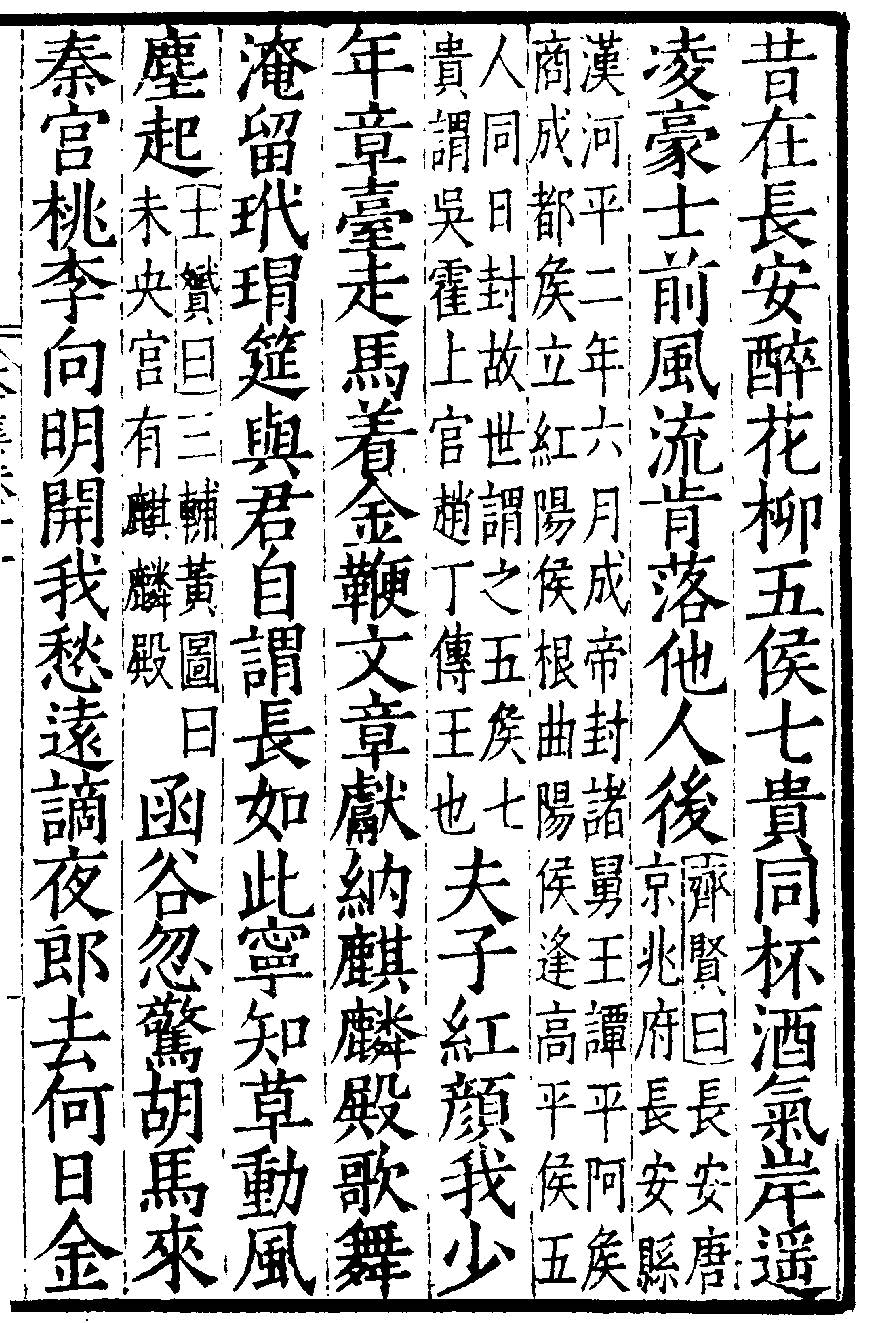 昔在長安醉花柳五侯七貴同杯酒氣岸遥
凌豪士前風流肯落他人後
齊賢曰長安唐
京兆府長安縣
漢河平二年六月成帝封諸舅王譚平阿侯
商成都侯立紅陽侯根曲陽侯逢高平侯五
人同日封故世謂之五侯七
貴謂吳霍上官趙丁傳王也
夫子紅顏我少
年章臺走馬着金鞭文章獻納麒麟殿歌舞
淹留玳瑁筵與君自謂長如此寧知草動風
塵起
士贇曰三輔黃圖曰
未央宮有麒麟殿
函谷忽驚胡馬來
秦宮桃李向明開我愁遠謫夜郎去何日金